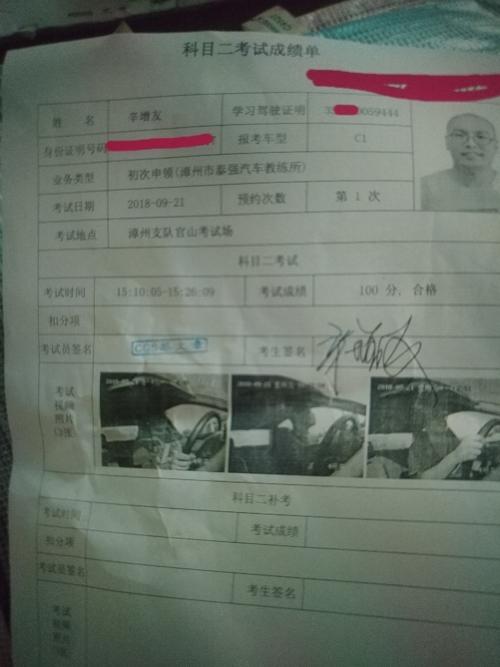 科目二考试成绩单
姓 名 辛增友 学习驾驶证明 35 0059444
身份证明号码 报考车型 C1
业务类型 初次申领(漳州市泰强汽车教练所)
考试日期 2018-09-21 预约次数 第 1 次
考试地点 漳州支队官山考试场
科目二考试
考试时间 15:10:05-15:26:09 考试成绩 100 分, 合格
扣分项
考试员签名 考生签名
考试
视频
照片
(3张)
科目二补考
考试时间 考试成绩
扣分项
考试员签名 考生签名
考试
视频
照片
(3张)